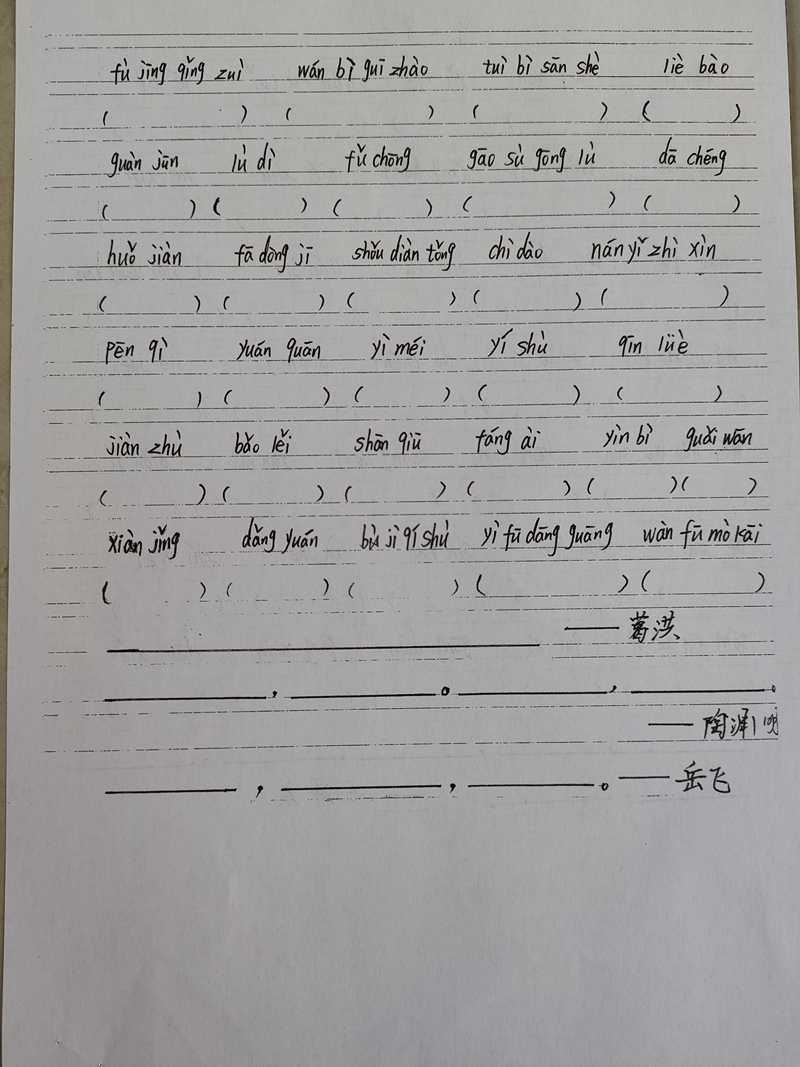 fù jīng qǐng zuì wán bì guī zhào tuì bì sān shè liè bào
( ) ( ) ( ) ( )
guàn jūn lù dì fǔ chōng gāo sù gōng lù dā chéng
( ) ( ) ( ) ( ) ( )
huǒ jiàn fā dòng jī shǒu diàn tǒng chì dào nán yǐ zhì xìn
( ) ( ) ( ) ( ) ( )
pēn qì yuán quān yì méi yí shù qīn lüè
( ) ( ) ( ) ( ) ( )
jiàn zhù bǎo lěi shān qiū fáng ài yìn bì guǎi wān
( ) ( ) ( ) ( ) ( ) ( )
xiàn jǐng dǎng yuán bù jì qí shù yì fū dāng guāng wàn fū mò kāi
( ) ( ) ( ) ( ) ( )
—— 葛洪
, 。 , 。
—— 陶渊明
, , 。—— 岳飞